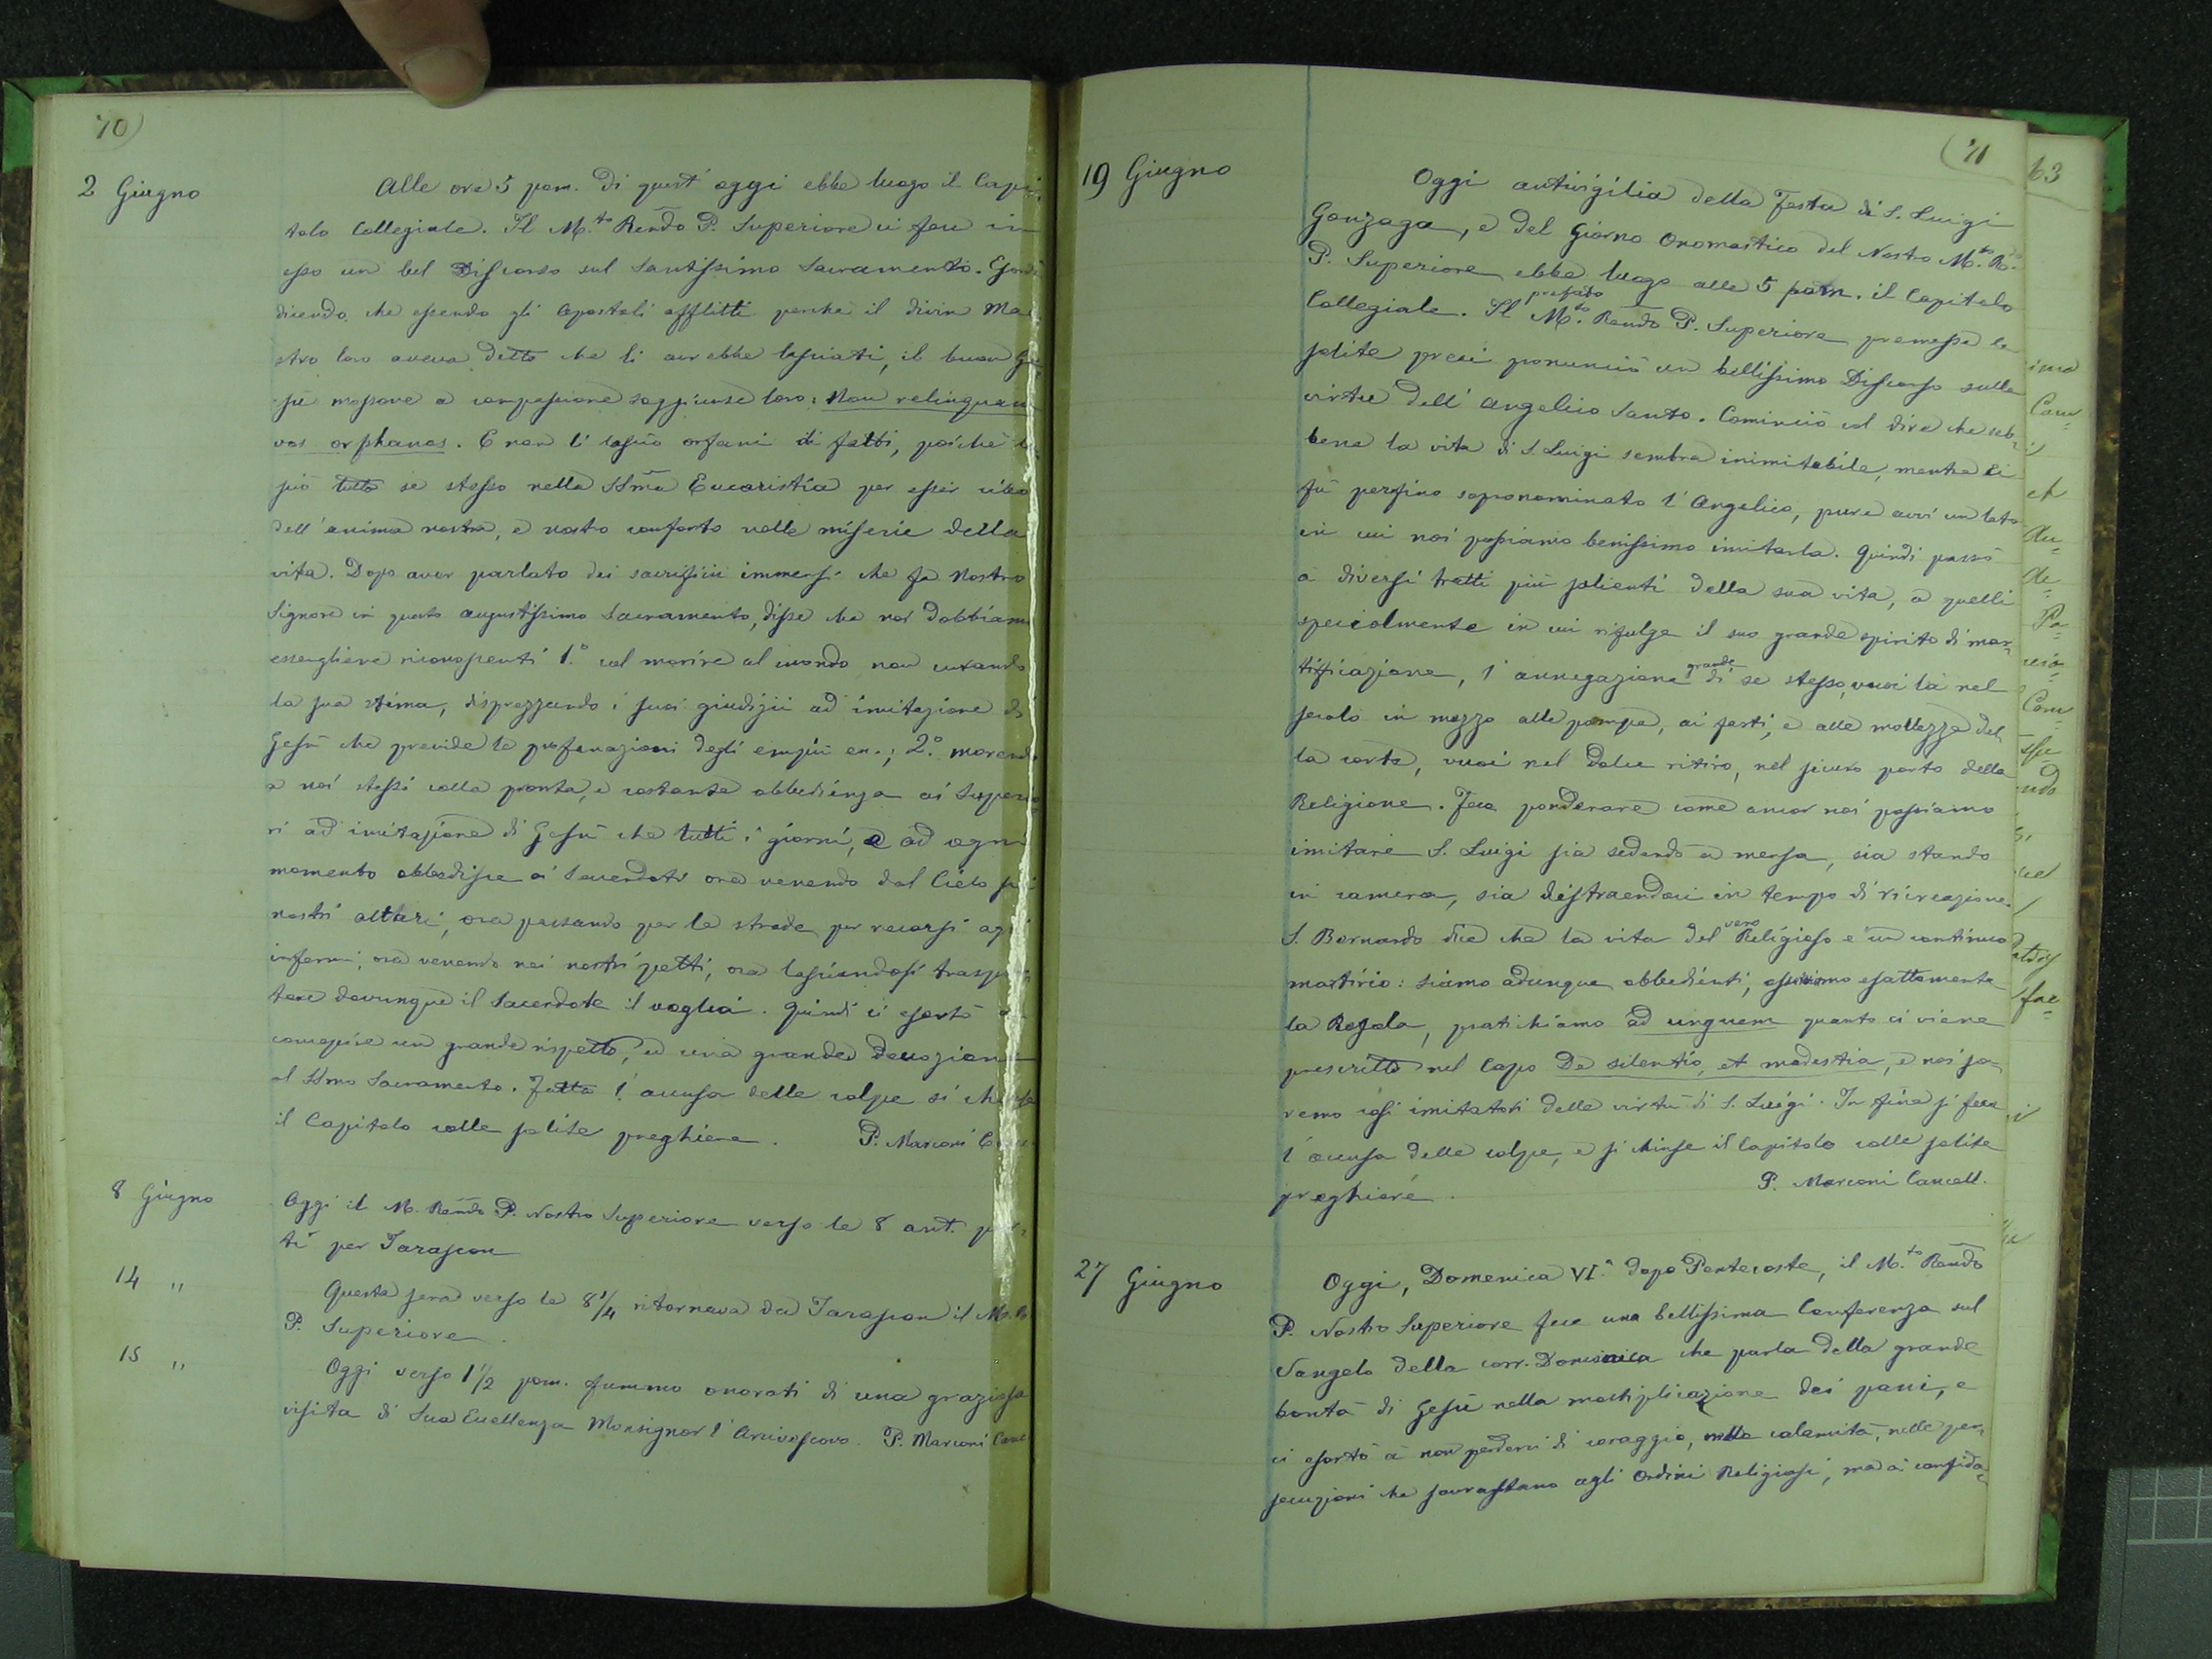 70)
2 Giugno
Alle ore 5 pom. di quest' oggi ebbe luogo il Capi
tolo Collegiale. Il M.to Rendo P. Superiore ci fece in
esso un bel Discorso sul Santissimo Sacramento. Esordì
dicendo che essendo gli Apostoli afflitti perchè il divin Mae
stro loro aveva detto che li avrebbe lasciati, il buon Ge
sù mossone a compassione soggiunse loro: Non relinquam
vos orphanos. E non li lasciò orfani di fatti, poichè la
sciò tutto se stesso nella SSma Eucaristia per esser cibo
dell' anima nostra, e nostro conforto nelle miserie della
vita. Dopo aver parlato dei sacrificii immensi che fa Nostro
Signore in questo augustissimo Sacramento, disse che noi dobbiamo
essergliene riconoscenti 1.° col morire al mondo non curando
la sua stima, disprezzando i suoi giudizii ad imitazione di
Gesù che previde le profanazioni degli empii ec.; 2.° morendo
a noi stessi colla pronta, e costante obbedienza ai Superio
ri ad imitazione di Gesù che tutti i giorni, e ad ogni
momento obbedisce ai Sacerdoti ora venendo dal Cielo sui
nostri altari, ora passando per le strade per recarsi agli
infermi, ora venendo nei nostri petti, ora lasciandosi traspor
tare dovunque il Sacerdote il voglia. Quindi ci esortò a
concepire un grande rispetto, ed una grande devozione
al SSmo Sacramento. Fatta l' accusa delle colpe si chiuse
il Capitolo colle solite preghiere. P. Marconi Canc
8 Giugno
Oggi il M. Rendo P. Nostro Superiore verso le 8 ant. par
tì per Tarascon
14 "
Questa sera verso le 8 1/4 ritornava da Tarascon il M. Ro
P. Superiore.
15 "
Oggi verso 1 1/2 pom. fummo onorati di una graziosa
visita di Sua Eccellenza Monsignor l' Arcivescovo. P. Marconi Canc
(71
19 Giugno
Oggi antivigilia della Festa di S. Luigi
Gonzaga, e del Giorno Onomastico del Nostro M.to R.
P. Superiore ebbe luogo alle 5 pom. il Capitolo
Collegiale. Il prefato M.to Rendo P. Superiore premesse le
solite preci pronunciò un bellissimo Discorso sulla
virtù dell' Angelico Santo. Cominciò col dire che seb=
bene la vita di S. Luigi sembra inimitabile, mentre Ei
fù perfino soprannominato l' Angelico, pure avvi un lato
in cui noi possiamo benissimo imitarla. Quindi passò
a diversi tratti più salienti della sua vita, a quelli
specialmente in cui rifulge il suo grande spirito di mor=
tificazione, l' annegazione grande di se stesso, vuoi là nel
secolo in mezzo alle pompe, ai fasti, e alle mollezze del
la corte, vuoi nel dolce ritiro, nel sicuro porto della
Religione. Fece ponderare come ancor noi possiamo
imitare S. Luigi sia sedendo a mensa, sia stando
in camera, sia distraendoci in tempo di ricreazione.
S. Bernardo dice che la vita del vero Religioso e' un continuo
martirio: siamo adunque obbedienti, esattamente
la Regola, pratichiamo ad unguem quanto ci viene
prescritto nel Capo De silentio, et modestia, e noi sa=
remo così imitatori delle virtù di S. Luigi. In fine si fece
l' accusa delle colpe, e si chiuse il Capitolo colle solite
preghiere. P. Marconi Cancell.
27 Giugno
Oggi, Domenica VI.a dopo Pentecoste, il M.to Rendo
P. Nostro Superiore fece una bellissima Conferenza sul
Vangelo della corr. Domenica che parla della grande
bontà di Gesù nella moltiplicazione dei pani, e
ci esortò a non perderci di coraggio, nelle calamità, nelle per=
secuzioni che sovrastano agli Ordini Religiosi, ma a confida=
63